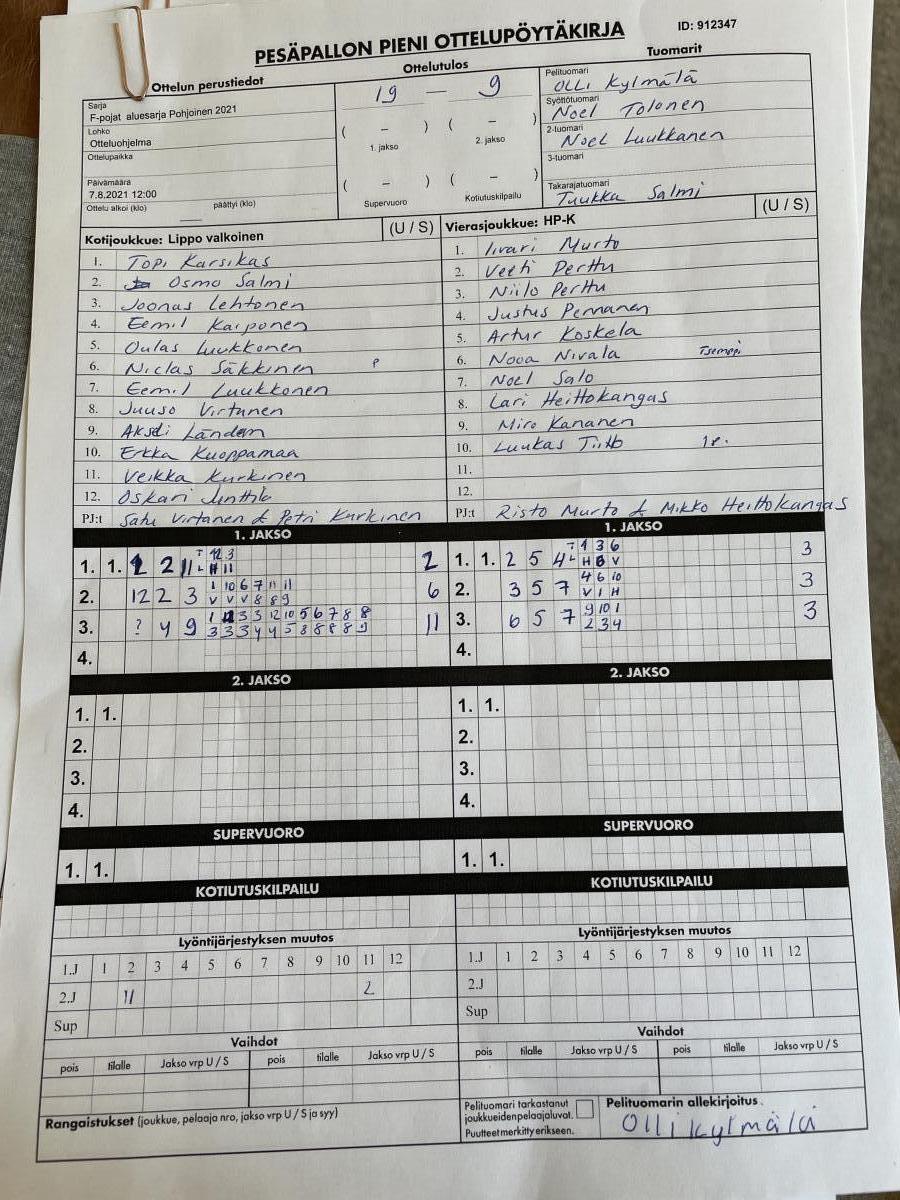 ID: 912347
PESÄPALLON PIENI OTTELUPÖYTÄKIRJA
Ottelun perustiedot
Sarja
F-pojat aluesarja Pohjoinen 2021
Lohko
Otteluohjelma
Ottelupaikka
Päivämäärä
7.8.2021 12:00
Ottelu alkoi (klo) päättyi (klo)
Ottelutulos
19 — 9
( – ) ( – )
1. jakso 2. jakso
( – ) ( – )
Supervuoro Kotiutuskilpailu
Tuomarit
Pelituomari
Olli Kylmälä
Syöttötuomari
Noel Tolonen
2-tuomari
Noel Luukkanen
3-tuomari
Takarajatuomari
Tuukka Salmi
Kotijoukkue: Lippo valkoinen (U / S)
1. Topi Karsikas
2. Osmo Salmi
3. Joonas Lehtonen
4. Eemil Karponen
5. Oulas Luukkonen
6. Niclas Säkkinen P
7. Eemil Luukkonen
8. Juuso Virtanen
9.
10. Erkka Kuoppamaa
11. Veikka Kurkinen
12. Oskari
PJ:t Satu Virtanen & Petri Kurkinen
Vierasjoukkue: HP-K (U / S)
1. Iivari Murto
2. Veeti Perttu
3. Niilo Perttu
4. Justus Pennanen
5. Artur Koskela
6. Nooa Nivala Tsemppi
7. Noel Salo
8. Lari Heittokangas
9. Miro Kananen
10. Luukas
11.
12.
PJ:t Risto Murto & Mikko Heittokangas
1. JAKSO
1. 1. 2
2. 12 2 3 1 10 6 7 11 11 6
V V V 8 8 9
3. ? 4 9 11
4.
1. JAKSO
1. 1. 2 5 4 T 1 3 6 3
L H V
2. 3 5 7 4 6 10 3
V 1 H
3. 6 5 7 9 10 1 3
2 3 4
4.
2. JAKSO
1. 1.
2.
3.
4.
2. JAKSO
1. 1.
2.
3.
4.
SUPERVUORO
1. 1.
SUPERVUORO
1. 1.
KOTIUTUSKILPAILU
KOTIUTUSKILPAILU
Lyöntijärjestyksen muutos
1.J 1 2 3 4 5 6 7 8 9 10 11 12
2.J 11 2
Sup
Lyöntijärjestyksen muutos
1.J 1 2 3 4 5 6 7 8 9 10 11 12
2.J
Sup
Vaihdot
pois tilalle Jakso vrp U / S pois tilalle Jakso vrp U / S
Vaihdot
pois tilalle Jakso vrp U / S pois tilalle Jakso vrp U / S
Rangaistukset (joukkue, pelaaja nro, jakso vrp U / S ja syy)
Pelituomari tarkastanut
joukkueidenpelaajaluvat.
Puutteet merkitty erikseen.
Pelituomarin allekirjoitus.
Olli kylmälä